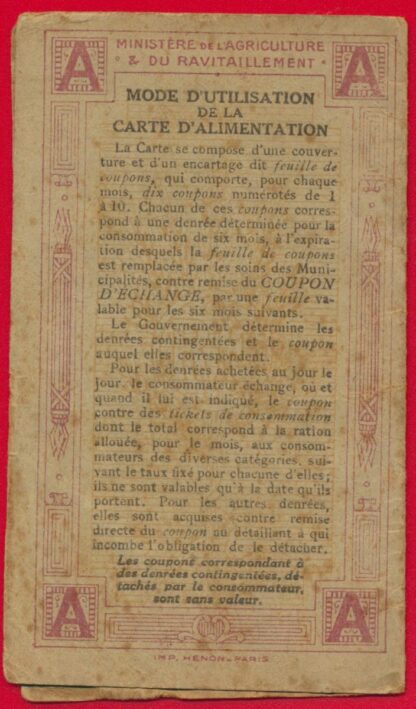 A MINISTÈRE DE L'AGRICULTURE A
& DU RAVITAILLEMENT
MODE D'UTILISATION
DE LA
CARTE D'ALIMENTATION
La Carte se compose d'une couver-
ture et d'un encartage dit feuille de
coupons, qui comporte, pour chaque
mois, dix coupons numérotés de 1
à 10. Chacun de ces coupons corres-
pond à une denrée déterminée pour la
consommation de six mois, à l'expira-
tion desquels la feuille de coupons
est remplacée par les soins des Muni-
cipalités, contre remise du COUPON
D'ÉCHANGE, par une feuille va-
lable pour les six mois suivants.
Le Gouvernement détermine les
denrées contingentées et le coupon
auquel elles correspondent.
Pour les denrées achetées au jour le
jour, le consommateur échange, où et
quand il lui est indiqué, le coupon
contre des tickets de consommation
dont le total correspond à la ration
allouée, pour le mois, aux consom-
mateurs des diverses catégories, sui-
vant le taux fixé pour chacune d'elles;
ils ne sont valables qu'à la date qu'ils
portent. Pour les autres denrées,
elles sont acquises contre remise
directe du coupon au détaillant à qui
incombe l'obligation de le détacher.
Les coupons correspondant à
des denrées contingentées, dé-
tachés par le consommateur,
sont sans valeur.
A A
IMP. HENON-PARIS